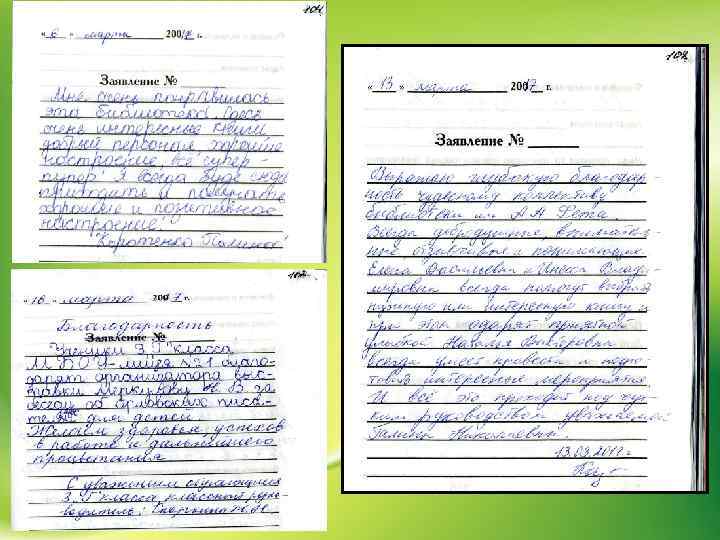 101
« 6 » марта 2007 г.
Заявление №
Мне очень понравилась
эта библиотека. Здесь
очень интересные книги
добрый персонал, хорошее
настроение, всё супер-
пупер! Я всегда буду сюда
приходить и получать
хорошее и позитивное
настроение!
Коротенко Полина
102
« 16 » марта 2007 г.
Благодарность
Заявление №
Ученики 3 "Г" класса
МБОУ-лицея №21 благо-
дарят организатора выс-
тавки Меркулову Н В за
беседу об Орловских писа-
телях для детей.
Желаем здоровья, успехов
в работе и дальнейшего
процветания
С уважением обучающиеся
3 "Г" класса, классный руко-
водитель:
102
« 13 » марта 2017 г.
Заявление №
Выражаю глубокую благодар-
ность чудесному коллективу
библиотеки им А.А. Фета.
Всегда добродушные, вниматель-
ные отзывчивые и понимающие
Елена Васильевна и Инесса Влади-
мировна всегда помогут выбрать
нужную или интересную книгу и
при этом одарят приятной
улыбкой Наталья Викторовна
всегда умеет провести и подго-
товить интересные мероприятия.
И всё это проходит под чут-
ким руководством уважаемой
Николаевны.
13.03.2017 г.